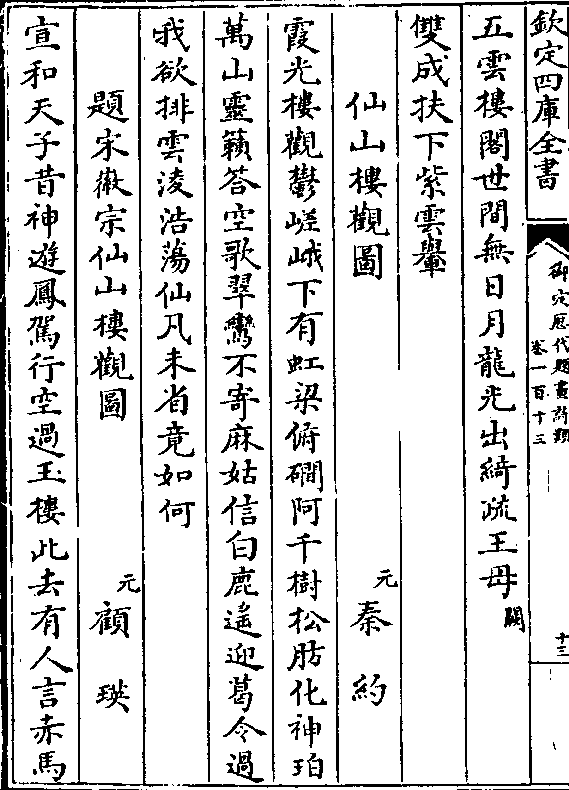 欽定四庫全書
御定歷代題畫詩類
卷一百十三
十三
五雲樓閣世間無日月龍光出綺疏王母闕
雙成扶下紫雲轝
仙山樓觀圖 元 秦約
霞光樓觀鬱嵯峨下有虹梁俯磵阿千樹松肪化神珀
萬山靈籟答空歌翠鸞不寄麻姑信白鹿遙迎葛令過
我欲排雲淩浩蕩仙凡未省竟如何
題宋徽宗仙山樓觀圖 元 顧瑛
宣和天子昔神遊鳳駕行空過玉樓此去有人言赤馬